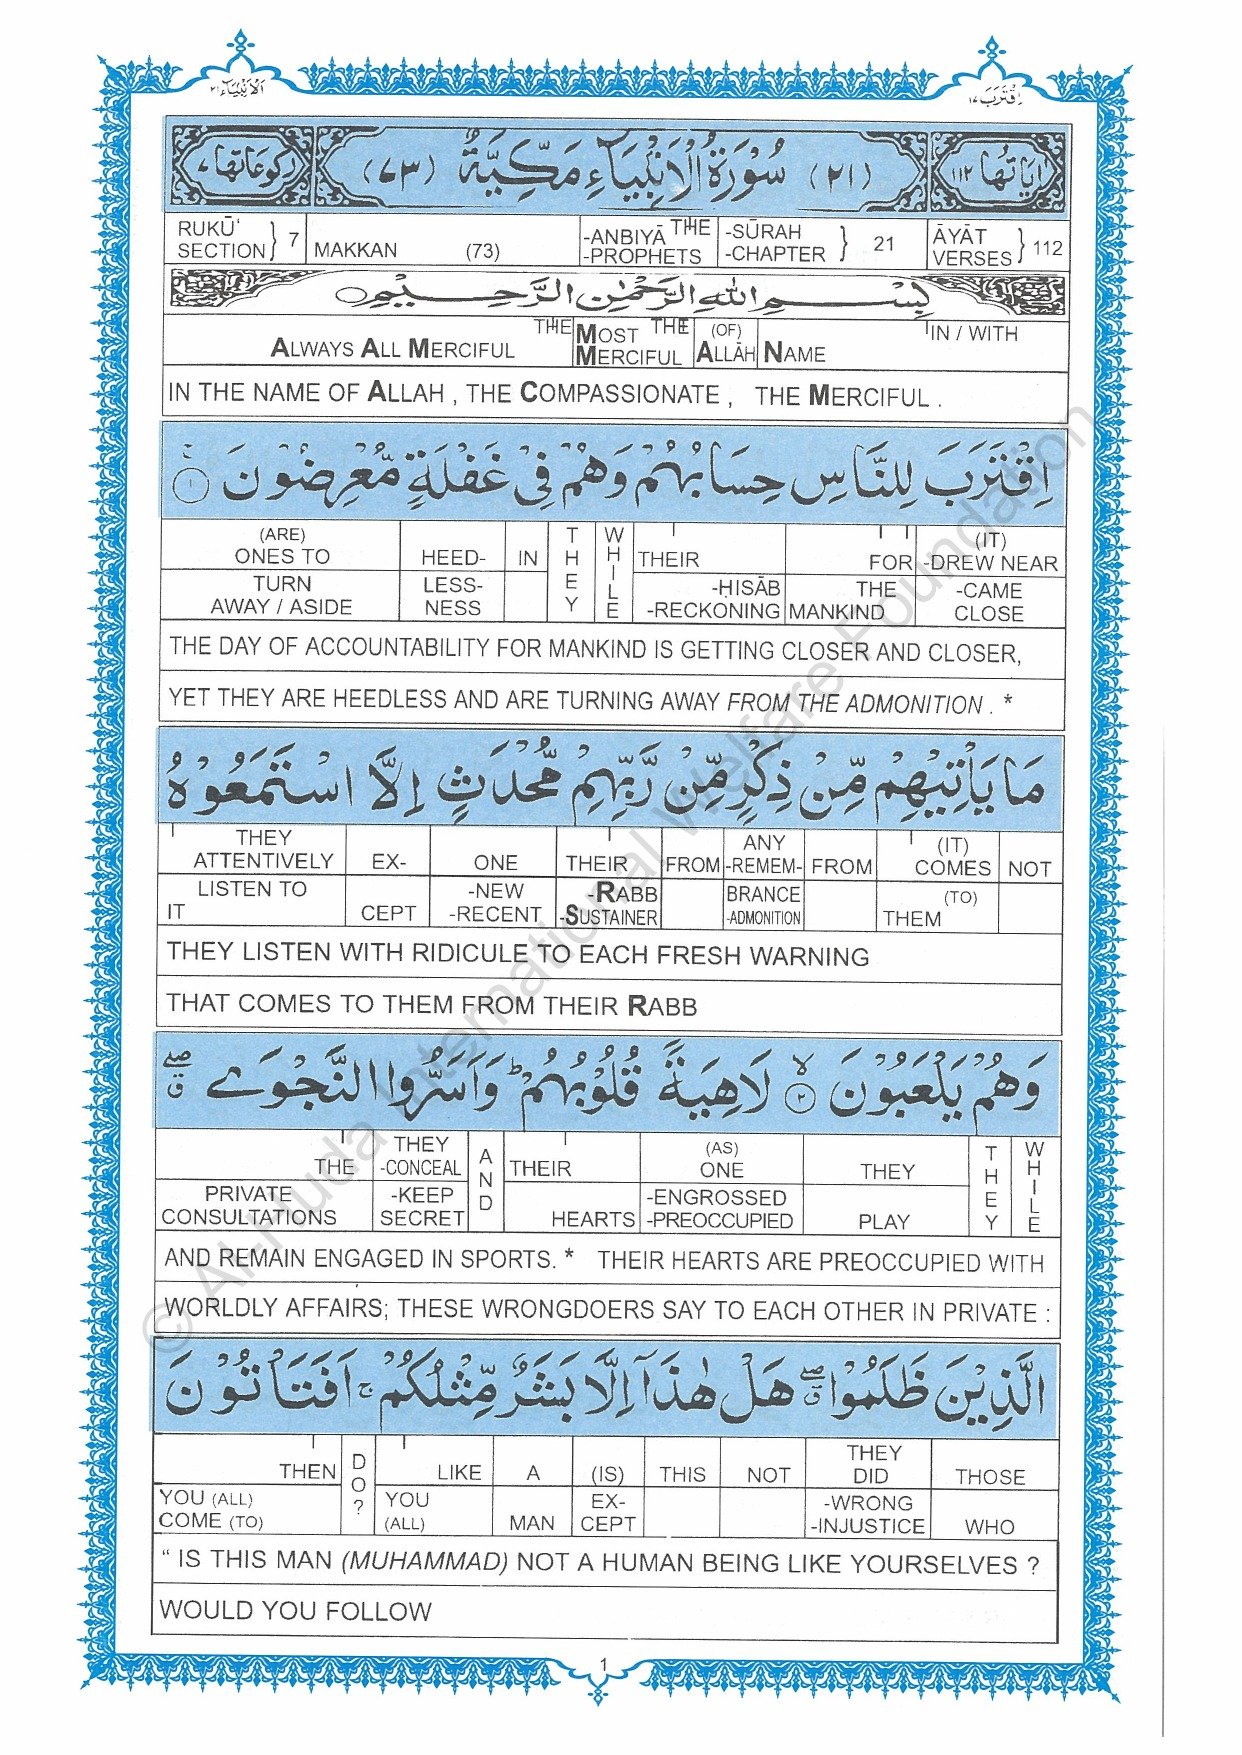 اَلْاَنْبِيَآء ٢١
اِقْتَرَبَ ١٧
اٰيَاتُهَا ١١٢
(٢١) سُوْرَةُ الْاَنْبِيَآءِ مَكِّيَّةٌ (٧٣)
رُكُوْعَاتُهَا ٧
RUKŪ‘ SECTION } 7 MAKKAN (73) -ANBIYĀ THE -PROPHETS -SŪRAH -CHAPTER } 21 ĀYĀT VERSES } 112
بِسْمِ اللّٰهِ الرَّحْمٰنِ الرَّحِيْمِ
THE MOST THE (OF) IN / WITH
ALWAYS ALL MERCIFUL MERCIFUL ALLĀH NAME
IN THE NAME OF ALLAH , THE COMPASSIONATE , THE MERCIFUL .
اِقْتَرَبَ لِلنَّاسِ حِسَابُهُمْ وَهُمْ فِيْ غَفْلَةٍ مُّعْرِضُوْنَ ۚ ١
(ARE) ONES TO HEED- IN THEY WHILE THEIR FOR (IT) -DREW NEAR
TURN AWAY / ASIDE LESS- NESS -ḤISĀB -RECKONING THE MANKIND -CAME CLOSE
THE DAY OF ACCOUNTABILITY FOR MANKIND IS GETTING CLOSER AND CLOSER,
YET THEY ARE HEEDLESS AND ARE TURNING AWAY FROM THE ADMONITION . *
مَا يَأْتِيْهِمْ مِّنْ ذِكْرٍ مِّنْ رَّبِّهِمْ مُّحْدَثٍ اِلَّا اسْتَمَعُوْهُ
THEY ATTENTIVELY EX- ONE THEIR FROM ANY -REMEM- FROM (IT) COMES NOT
LISTEN TO IT CEPT -NEW -RECENT -RABB -SUSTAINER BRANCE -ADMONITION (TO) THEM
THEY LISTEN WITH RIDICULE TO EACH FRESH WARNING
THAT COMES TO THEM FROM THEIR RABB
وَهُمْ يَلْعَبُوْنَ ۙ ٢ لَاهِيَةً قُلُوْبُهُمْ ؕ وَاَسَرُّوا النَّجْوَے ۖ ق
THE THEY -CONCEAL AND THEIR (AS) ONE THEY THEY WHILE
PRIVATE CONSULTATIONS -KEEP SECRET HEARTS -ENGROSSED -PREOCCUPIED PLAY
AND REMAIN ENGAGED IN SPORTS. * THEIR HEARTS ARE PREOCCUPIED WITH
WORLDLY AFFAIRS; THESE WRONGDOERS SAY TO EACH OTHER IN PRIVATE :
الَّذِيْنَ ظَلَمُوْا ۖ ق هَلْ هٰذَآ اِلَّا بَشَرٌ مِّثْلُكُمْ ۚ اَفَتَأْتُوْنَ
THEN DO? LIKE A (IS) THIS NOT THEY DID THOSE
YOU (ALL) COME (TO) YOU (ALL) MAN EX- CEPT -WRONG -INJUSTICE WHO
“ IS THIS MAN (MUHAMMAD) NOT A HUMAN BEING LIKE YOURSELVES ?
WOULD YOU FOLLOW
1
© Al-Huda International Welfare Foundation